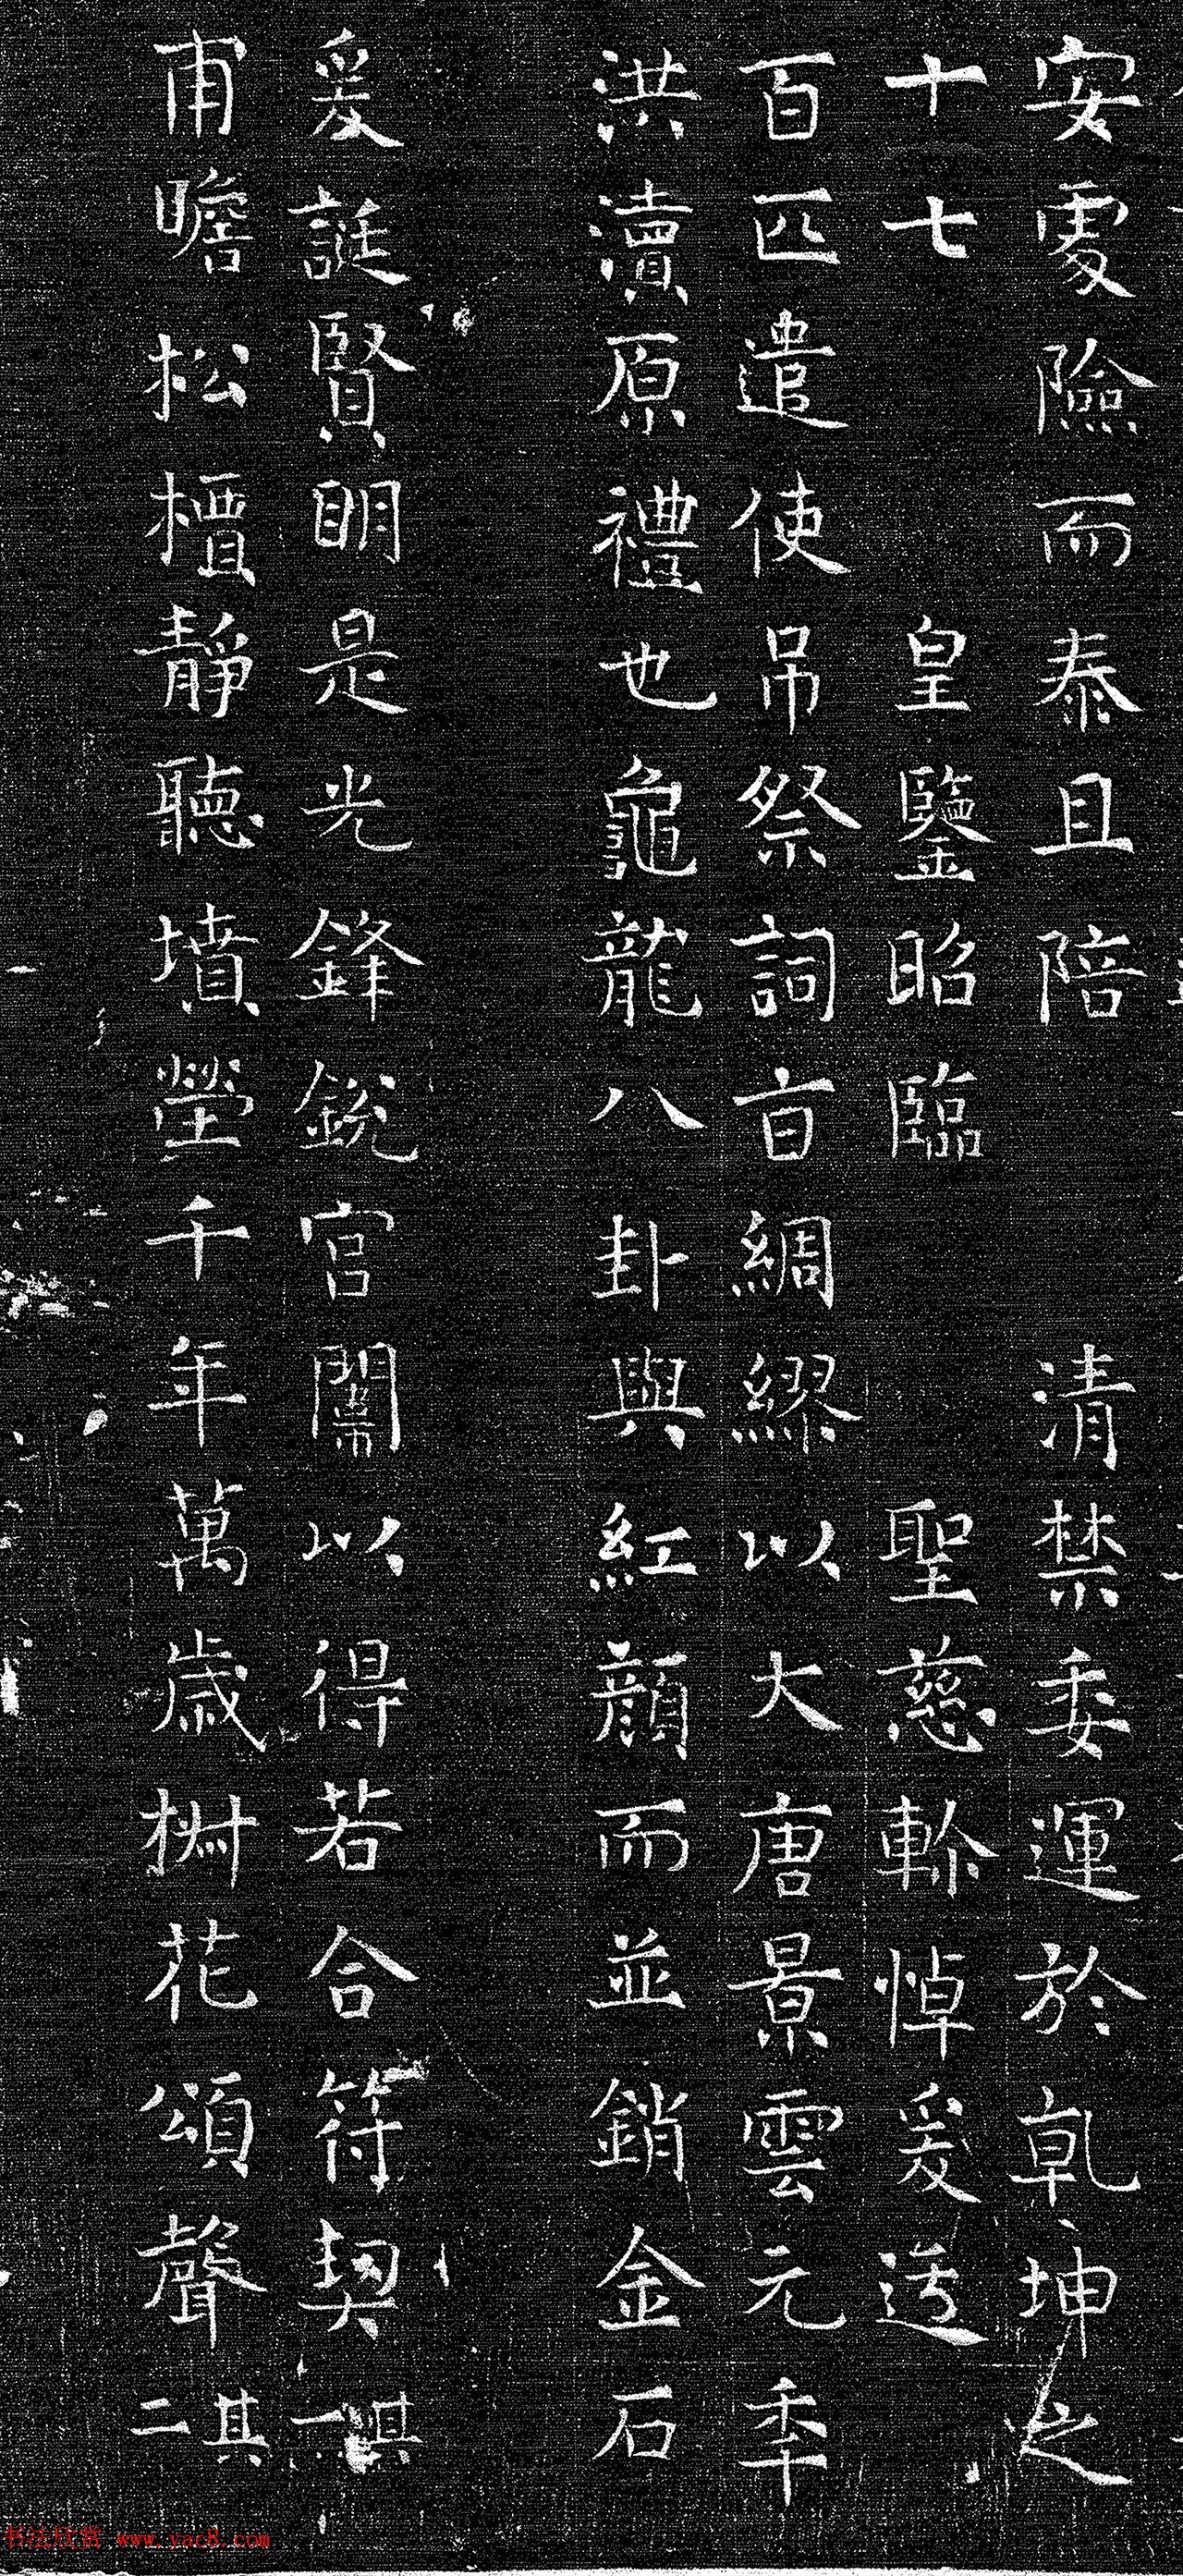 安處險而泰且陪 清禁委運於乹坤之
十七 皇鑒昭臨 聖慈軫悼爰送
百匹遣使吊祭詞旨綢繆以大唐景雲元秊
洪瀆原禮也龜龍八卦與紅顔而並銷金石
爰誕賢明是光鋒銳宫闈以得若合符契其一
甫瞻松檟靜聽墳塋千年萬歲椒花頌聲其二
书法欣赏 www.yac8.com